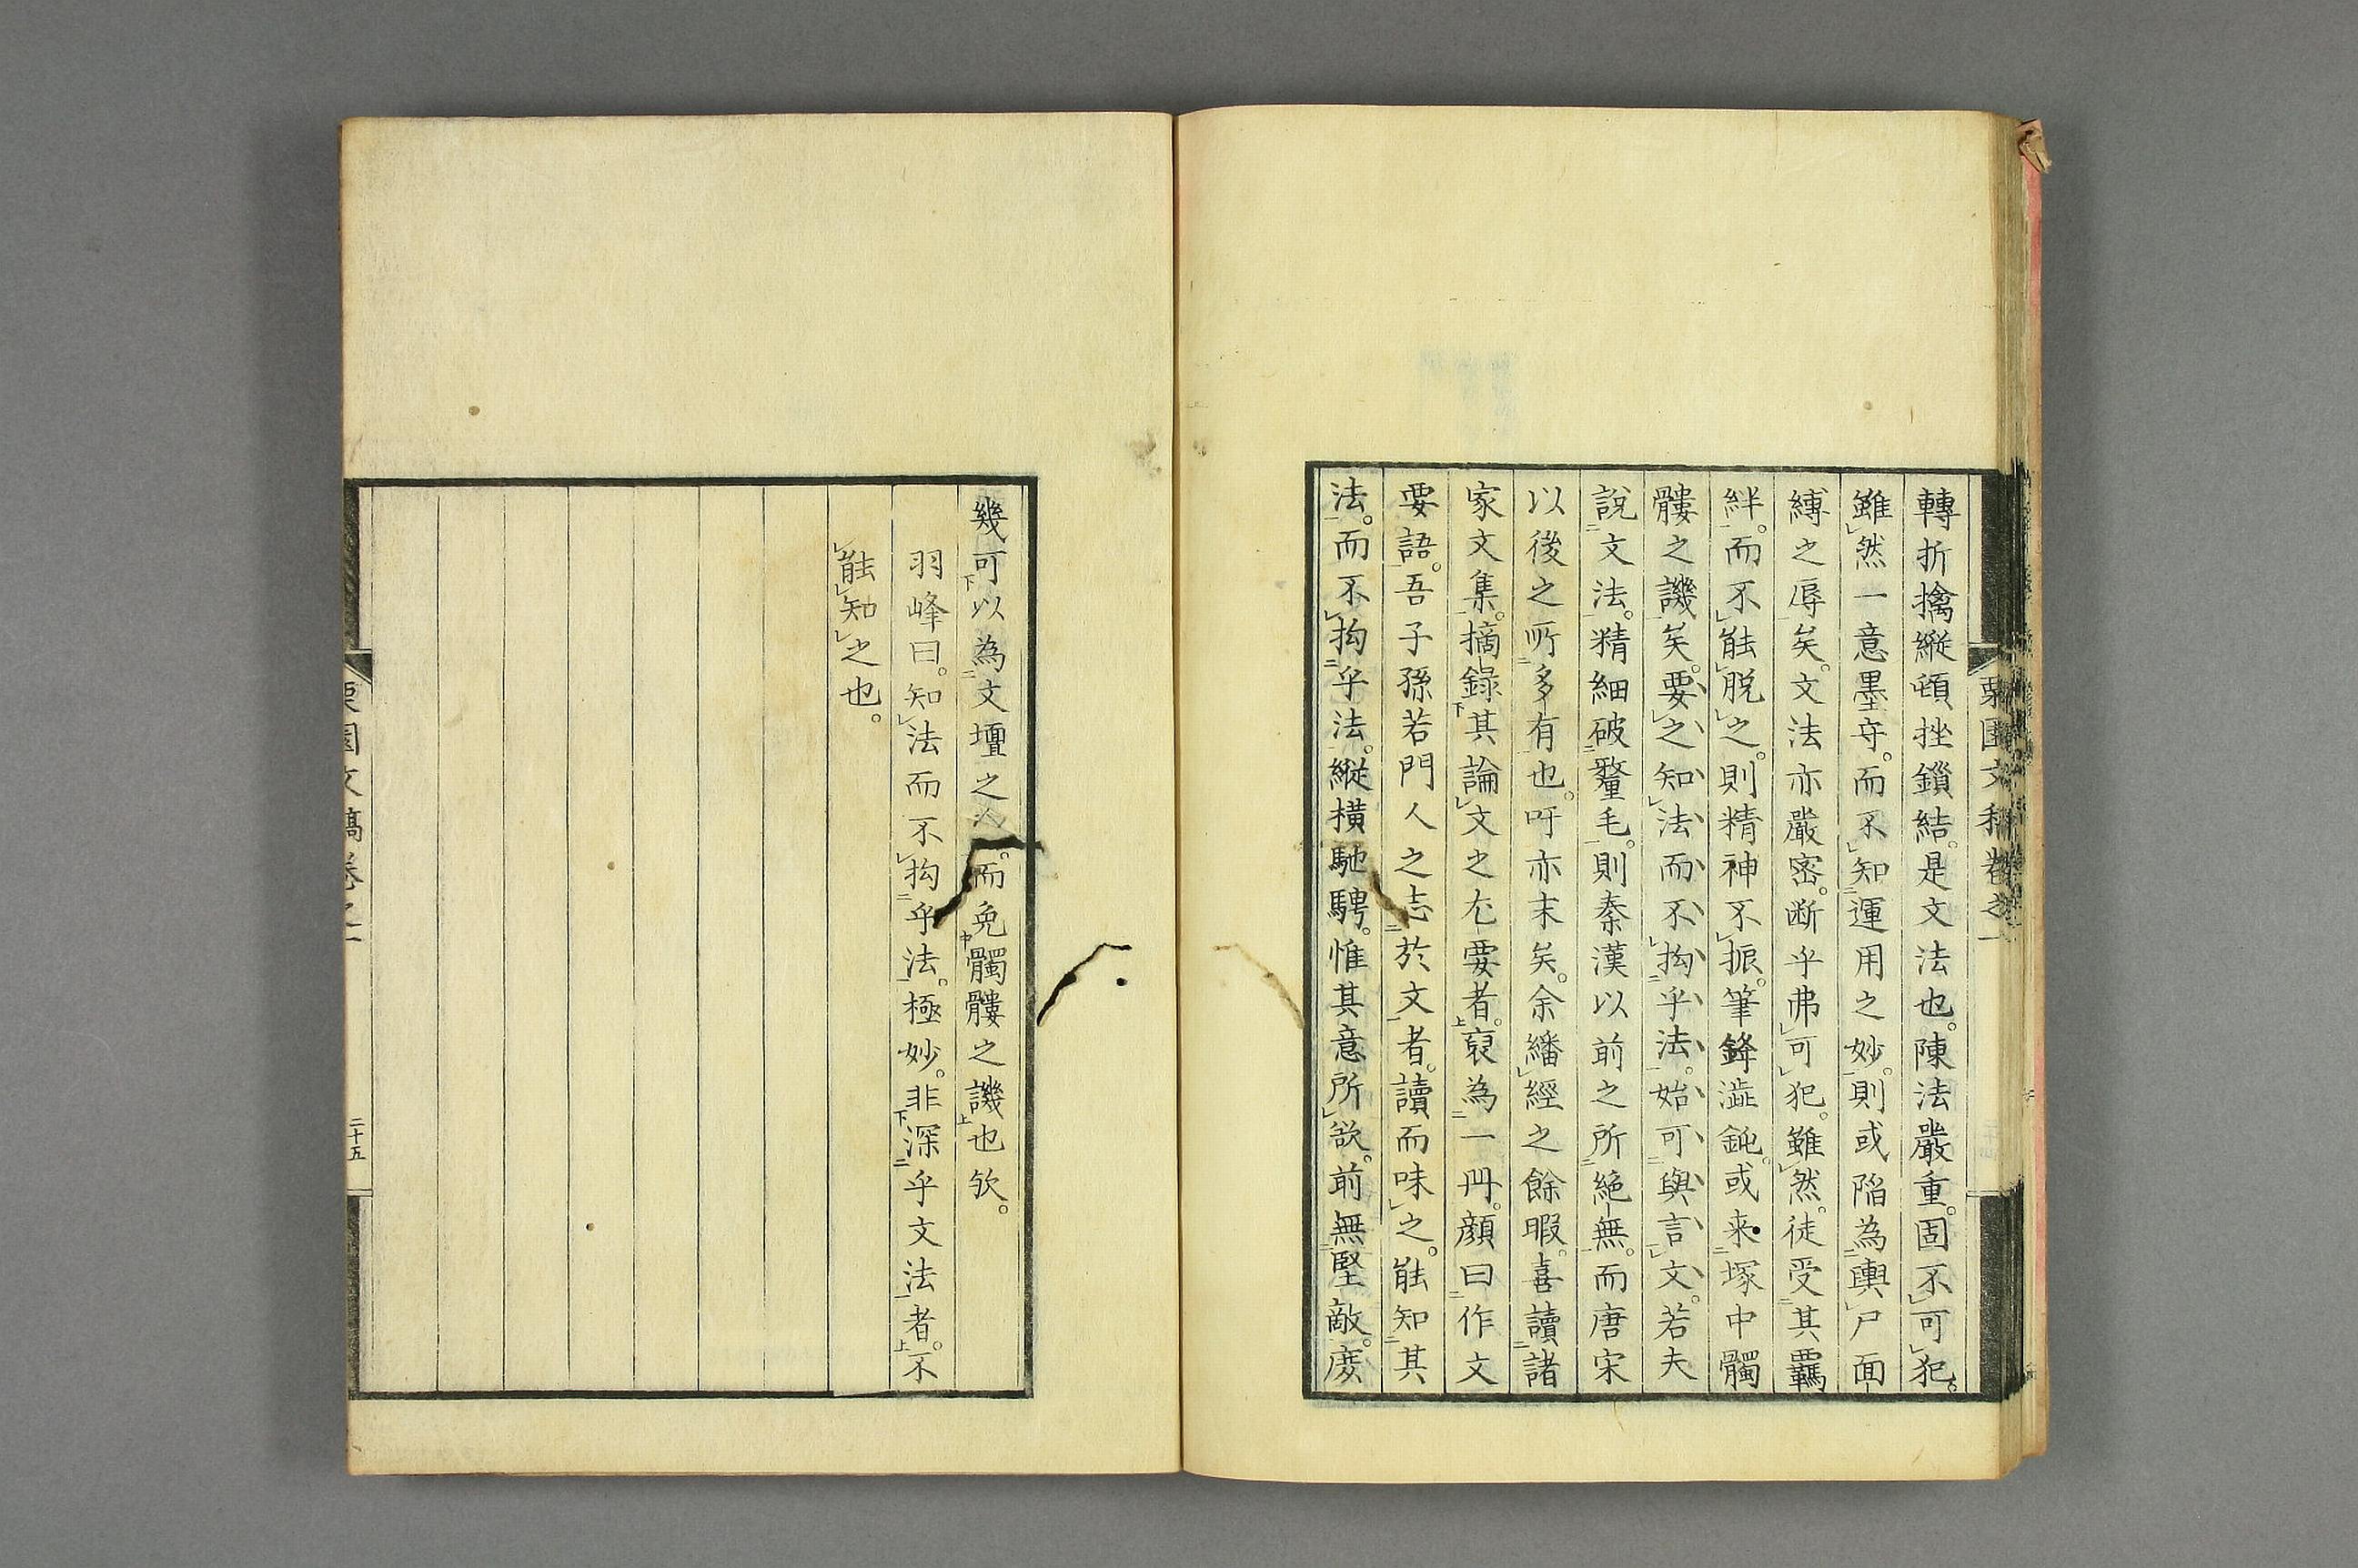 轉折擒縱頓挫鎖結。是文法也。陳法嚴重。固不可犯。
雖然一意墨守。而不知運用之妙。則或陷為輿尸面
縛之辱矣。文法亦嚴密。断乎弗可犯。雖然。徒受其羈
絆。而不能脱之。則精神不振。筆鋒澁鈍。或来塚中髑
髏之譏矣。要之知法而不拘乎法。始可與言文。若夫
説文法。精細破氂毛。則秦漢以前之所絶無。而唐宋
以後之所多有也。吁亦末矣。余繙經之餘暇。喜讀諸
家文集。摘録其論文之尤要者。裒為一冊。顔曰作文
要語。吾子孫若門人之志於文者。讀而味之。能知其
法。而不拘乎法。縱横馳騁。惟其意所欲。前無堅敵。庶
幾可以為文壇之。而免髑髏之譏也欤。
羽峰曰。知法而不拘乎法。極妙。非深乎文法者。不
能知之也。
栗園文稿卷之一
二十五